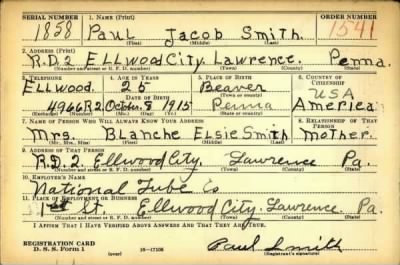 SERIAL NUMBER 1. NAME (Print) ORDER NUMBER
1858 Paul Jacob Smith. 1541
(First) (Middle) (Last)
2. ADDRESS (Print)
R.D.2 Ellwood City, Lawrence. Penna.
(Number and street or R. F. D. number) (Town) (County) (State)
3. TELEPHONE 4. AGE IN YEARS 5. PLACE OF BIRTH 6. COUNTRY OF CITIZENSHIP
Ellwood. 25 Beaver USA
(Town or county)
4966R2 October. 8 1915 Penna America
7. NAME OF PERSON WHO WILL ALWAYS KNOW YOUR ADDRESS 8. RELATIONSHIP OF THAT PERSON
Mrs. Blanche Elsie Smith Mother.
(Mr., Mrs., Miss) (First) (Middle) (Last)
9. ADDRESS OF THAT PERSON
R.D. 2. Ellwood City, Lawrence Pa.
(Number and street or R. F. D. number) (Town) (County) (State)
10. EMPLOYER'S NAME
National Tube Co
11. PLACE OF EMPLOYMENT OR BUSINESS
1st St. Ellwood City. Lawrence. Pa.
(Number and street or R. F. D. number) (Town) (County) (State)
I AFFIRM THAT I HAVE VERIFIED ABOVE ANSWERS AND THAT THEY ARE TRUE.
REGISTRATION CARD
D. S. S. Form 1 (over) Paul Smith
(Registrant's signature)